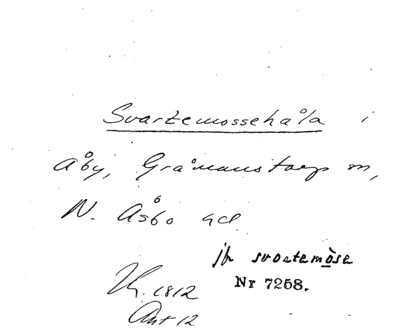 Svartemossehåla i
Åby, Gråmanstorps sn,
N. Åsbo hd
jfr svartemåse
Nr 7258.
1812
Akt 12